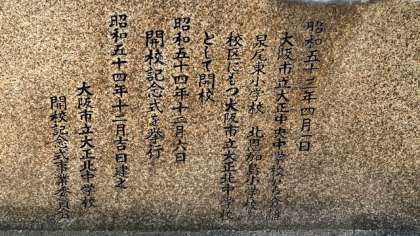 昭和五十三年四月一日
大阪市立大正中央中学校から分離
泉尾東小学校 北恩加島小学校を
校区にもつ大阪市立大正北中学校
として開校
昭和五十四年十二月六日
開校記念式を挙行
昭和五十四年十二月吉日建之
大阪市立大正北中学校
開校記念式事業委員会